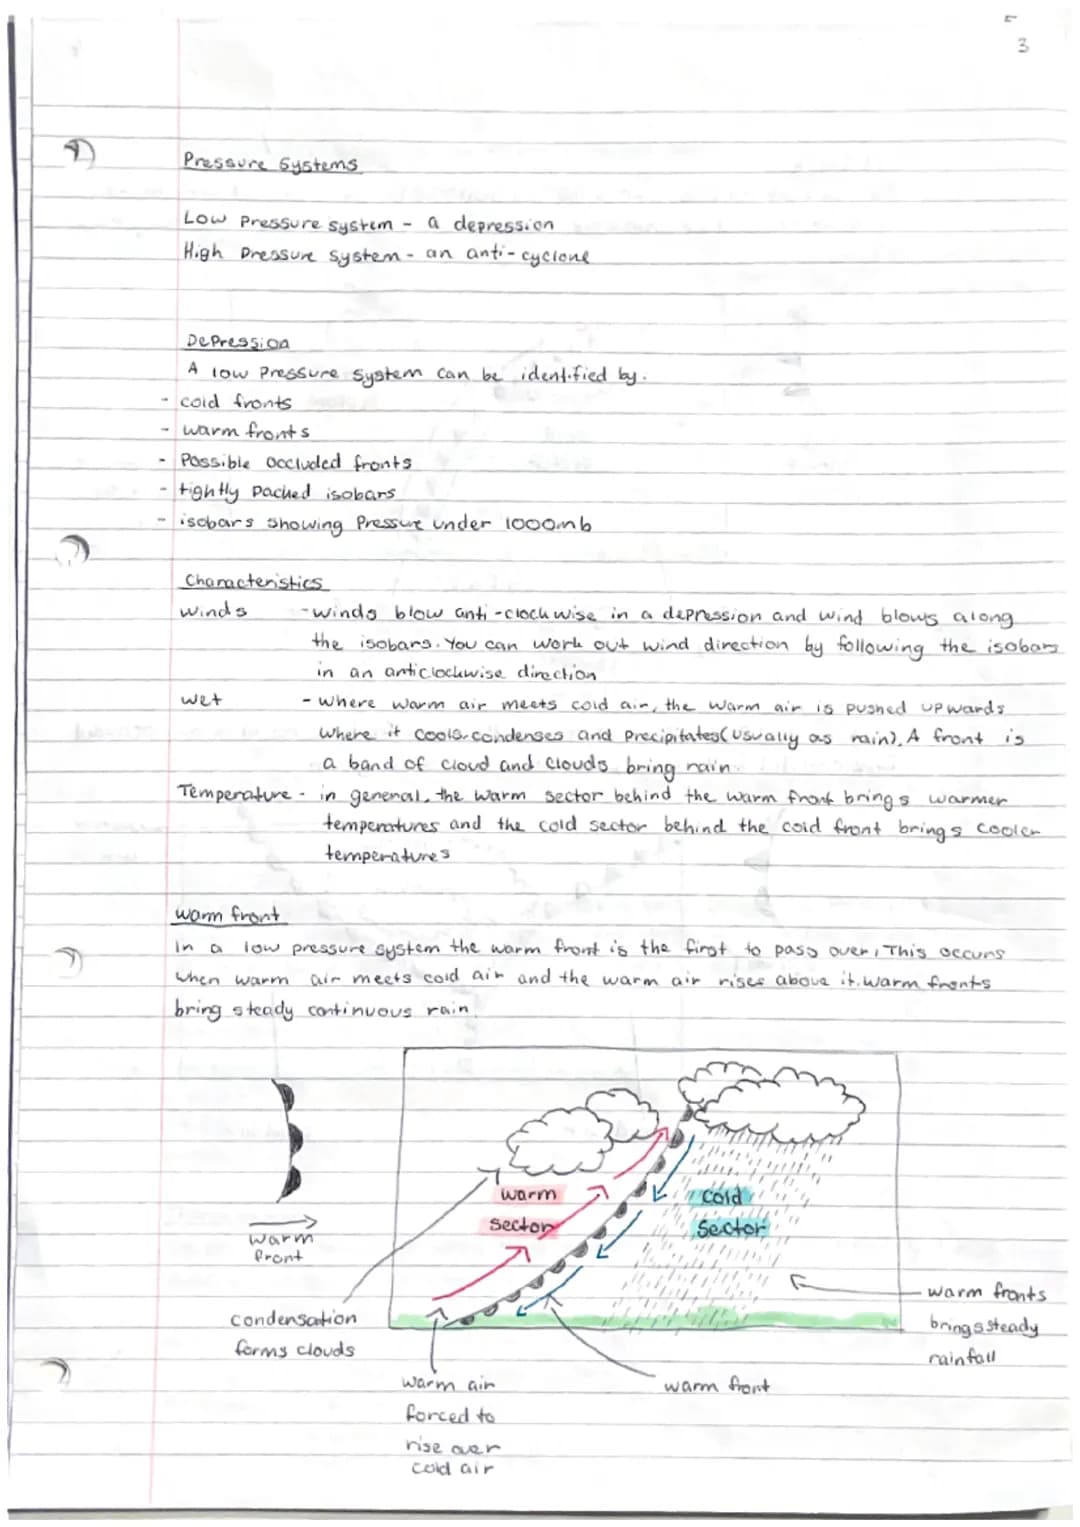 3
Pressure Systems
Low pressure system - a depression
High Pressure system - an anti-cyclone
Depression
A low Pressure system can be identified by.
- cold fronts
- warm fronts
- Possible occluded fronts
- tightly packed isobars
- isobars showing Pressure under 1000mb
Characteristics
winds - winds blow anti-clockwise in a depression and wind blows along
the isobars. You can work out wind direction by following the isobars
in an anticlockwise direction
wet - where warm air meets cold air, the warm air is pushed upwards
where it cools, condenses and precipitates (usually as rain). A front is
a band of cloud and clouds bring rain
Temperature - in general, the warm sector behind the warm front brings warmer
temperatures and the cold sector behind the cold front brings cooler
temperatures
warm front
In a low pressure system the warm front is the first to pass over, This occurs
when warm air meets cold air and the warm air rises above it. warm fronts
bring steady continuous rain.
warm
sector
cold
sector
warm
front
condensation
forms clouds
warm air
forced to
rise over
cold air
warm front
warm fronts
brings steady
rainfall